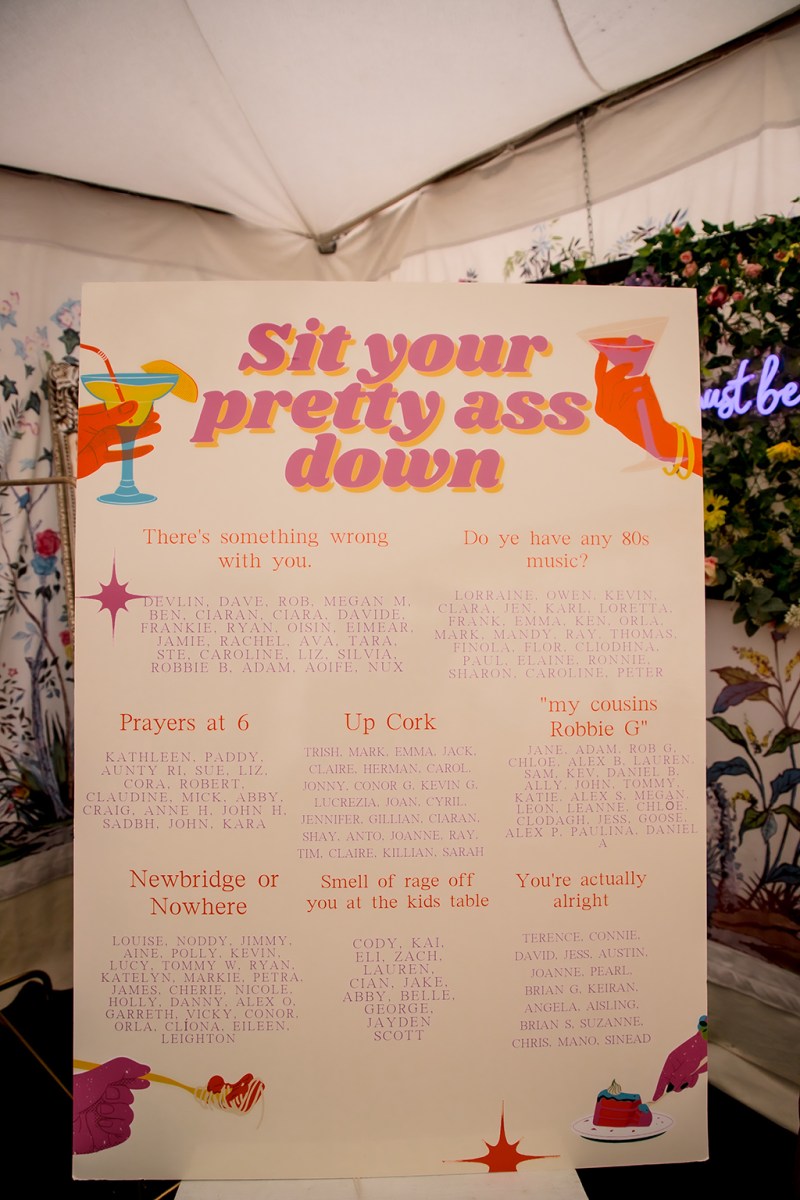 Sit your
pretty ass
down
ust be
There's something wrong
with you.
DEVLIN, DAVE, ROB, MEGAN M,
BEN, CIARAN, CIARA, DAVIDE,
FRANKIE, RYAN, OISIN, EIMEAR,
JAMIE, RACHEL, AVA, TARA,
STE, CAROLINE, LIZ, SILVIA,
ROBBIE B, ADAM, AOIFE, NUX
Do ye have any 80s
music?
LORRAINE, OWEN, KEVIN,
CLARA, JEN, KARL, LORETTA,
FRANK, EMMA, KEN, ORLA,
MARK, MANDY, RAY, THOMAS,
FINOLA, FLOR, CLIODHNA,
PAUL, ELAINE, RONNIE,
SHARON, CAROLINE, PETER
Prayers at 6
KATHLEEN, PADDY,
AUNTY RI, SUE, LIZ,
CORA, ROBERT,
CLAUDINE, MICK, ABBY,
CRAIG, ANNE H, JOHN H,
SADBH, JOHN, KARA
Up Cork
TRISH, MARK, EMMA, JACK,
CLAIRE, HERMAN, CAROL,
JONNY, CONOR G, KEVIN G,
LUCREZIA, JOAN, CYRIL,
JENNIFER, GILLIAN, CIARAN,
SHAY, ANTO, JOANNE, RAY,
TIM, CLAIRE, KILLIAN, SARAH
"my cousins
Robbie G"
JANE, ADAM, ROB G,
CHLOE, ALEX B, LAUREN,
SAM, KEV, DANIEL B,
ALLY, JOHN, TOMMY,
KATIE, ALEX S, MEGAN,
LEON, LEANNE, CHLOE,
CLODAGH, JESS, GOOSE,
ALEX P, PAULINA, DANIEL
A
Newbridge or
Nowhere
LOUISE, NODDY, JIMMY,
AINE, POLLY, KEVIN,
LUCY, TOMMY W, RYAN,
KATELYN, MARKIE, PETRA,
JAMES, CHERIE, NICOLE,
HOLLY, DANNY, ALEX O,
GARRETH, VICKY, CONOR,
ORLA, CLÍONA, EILEEN,
LEIGHTON
Smell of rage off
you at the kids table
CODY, KAI,
ELI, ZACH,
LAUREN,
CIAN, JAKE,
ABBY, BELLE,
GEORGE,
JAYDEN
SCOTT
You're actually
alright
TERENCE, CONNIE,
DAVID, JESS, AUSTIN,
JOANNE, PEARL,
BRIAN G, KEIRAN,
ANGELA, AISLING,
BRIAN S, SUZANNE,
CHRIS, MANO, SINEAD